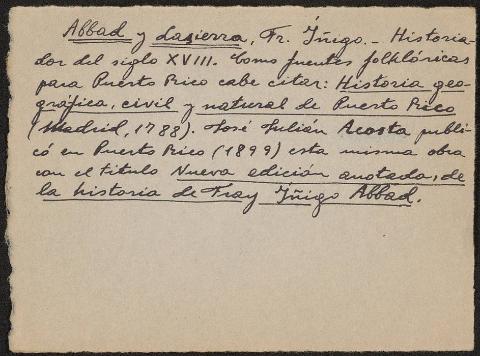 Abbad y Lasierra, Fr. Íñigo. - Historia-
dor del siglo XVIII. Como fuentes folklóricas
para Puerto Rico cabe citar: Historia geo-
gráfica, civil y natural de Puerto Rico
(Madrid, 1788). José Julián Acosta publi-
có en Puerto Rico (1899) esta misma obra
con el título Nueva edición anotada, de
la historia de Fray Íñigo Abbad.